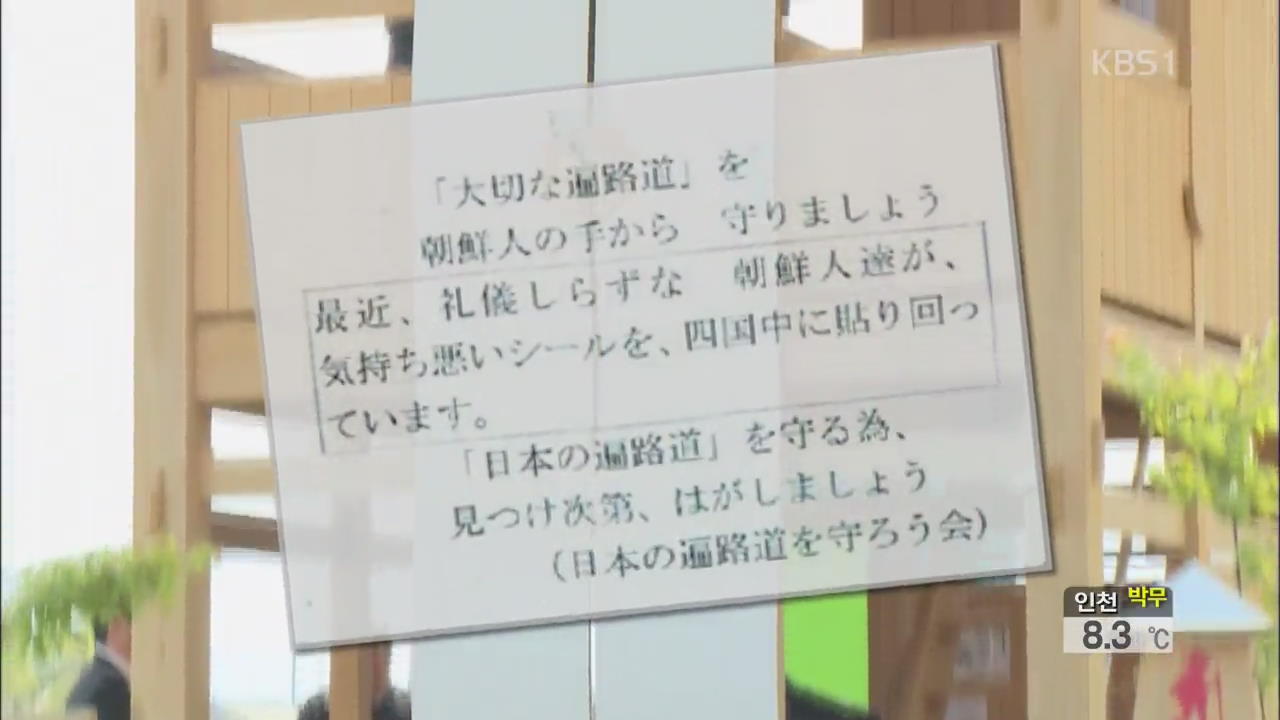 KBS1
「大切な遍路道」を
朝鮮人の手から 守りましょう
最近、礼儀しらずな 朝鮮人達が、
気持ち悪いシールを、四国中に貼り回っ
ています。
「日本の遍路道」を守る為、
見つけ次第、はがしましょう
(日本の遍路道を守ろう会)
인천 박무
8.3 ℃